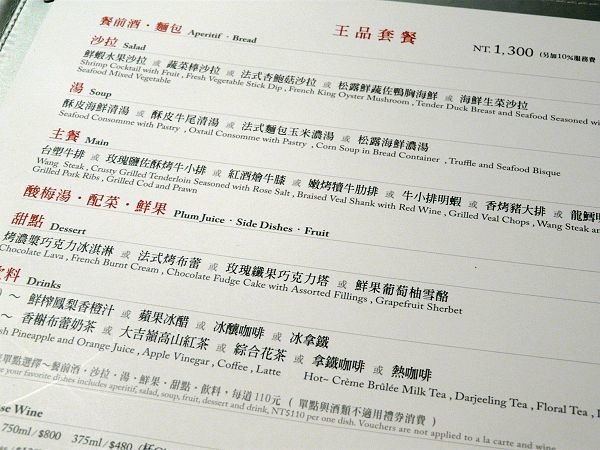 餐前酒・麵包 Aperitif · Bread
王品套餐
NT. 1,300 (另加10%服務費
沙拉 Salad
鮮蝦水果沙拉 或 蔬菜棒沙拉 或 法式杏鮑菇沙拉 或 松露鮮蔬佐鴨胸海鮮 或 海鮮生菜沙拉
Shrimp Cocktail with Fruit , Fresh Vegetable Stick Dip , French King Oyster Mushroom , Tender Duck Breast and Seafood Seasoned wi
Seafood Mixed Vegetable
湯 Soup
酥皮海鮮清湯 或 酥皮牛尾清湯 或 法式麵包玉米濃湯 或 松露海鮮濃湯
Seafood Consomme with Pastry , Oxtail Consomme with Pastry , Corn Soup in Bread Container , Truffle and Seafood Bisque
主餐 Main
台塑牛排 或 玫瑰鹽佐酥烤牛小排 或 紅酒燴牛膝 或 嫩烤犢牛肋排 或 牛小排明蝦 或 香烤豬大排 或 龍鱈明
Wang Steak , Crusty Grilled Tenderloin Seasoned with Rose Salt , Braised Veal Shank with Red Wine , Grilled Veal Chops , Wang Steak an
Grilled Pork Ribs , Grilled Cod and Prawn
酸梅湯・配菜・鮮果 Plum Juice · Side Dishes · Fruit
甜點 Dessert
烤濃漿巧克力冰淇淋 或 法式烤布蕾 或 玫瑰纖果巧克力塔 或 鮮果葡萄柚雪酪
Chocolate Lava , French Burnt Cream , Chocolate Fudge Cake with Assorted Fillings , Grapefruit Sherbet
飲料 Drinks
) ～ 鮮榨鳳梨香橙汁 或 蘋果冰醋 或 冰釀咖啡 或 冰拿鐵
～ 香榭布蕾奶茶 或 大吉嶺高山紅茶 或 綜合花茶 或 拿鐵咖啡 或 熱咖啡
sh Pineapple and Orange Juice , Apple Vinegar , Coffee , Latte Hot~ Crème Brûlée Milk Tea , Darjeeling Tea , Floral Tea , L
單點選擇～餐前酒・沙拉・湯・鮮果・甜點・飲料，每道110元 ( 單點與酒類不適用禮券消費 )
e your favorite dishes includes aperitif, salad, soup, fruit, dessert and drink, NT$110 per one dish. Vouchers are not applied to a la carte and wine.
se Wine
750ml / $800 375ml / $480